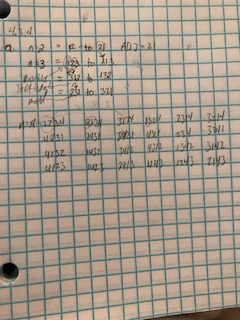 4.3.4
a. n=2 = 12 to 21 A[1]=21
n=3 = 123 to 213
312 to 132
231 to 321
n=4 1234 2134 3124 1324 2314 3214
4231 2431 3421 4321 234 3241
4132 1432 3412 4312 1342 3142
4123 1423 2413 4213 1243 2143